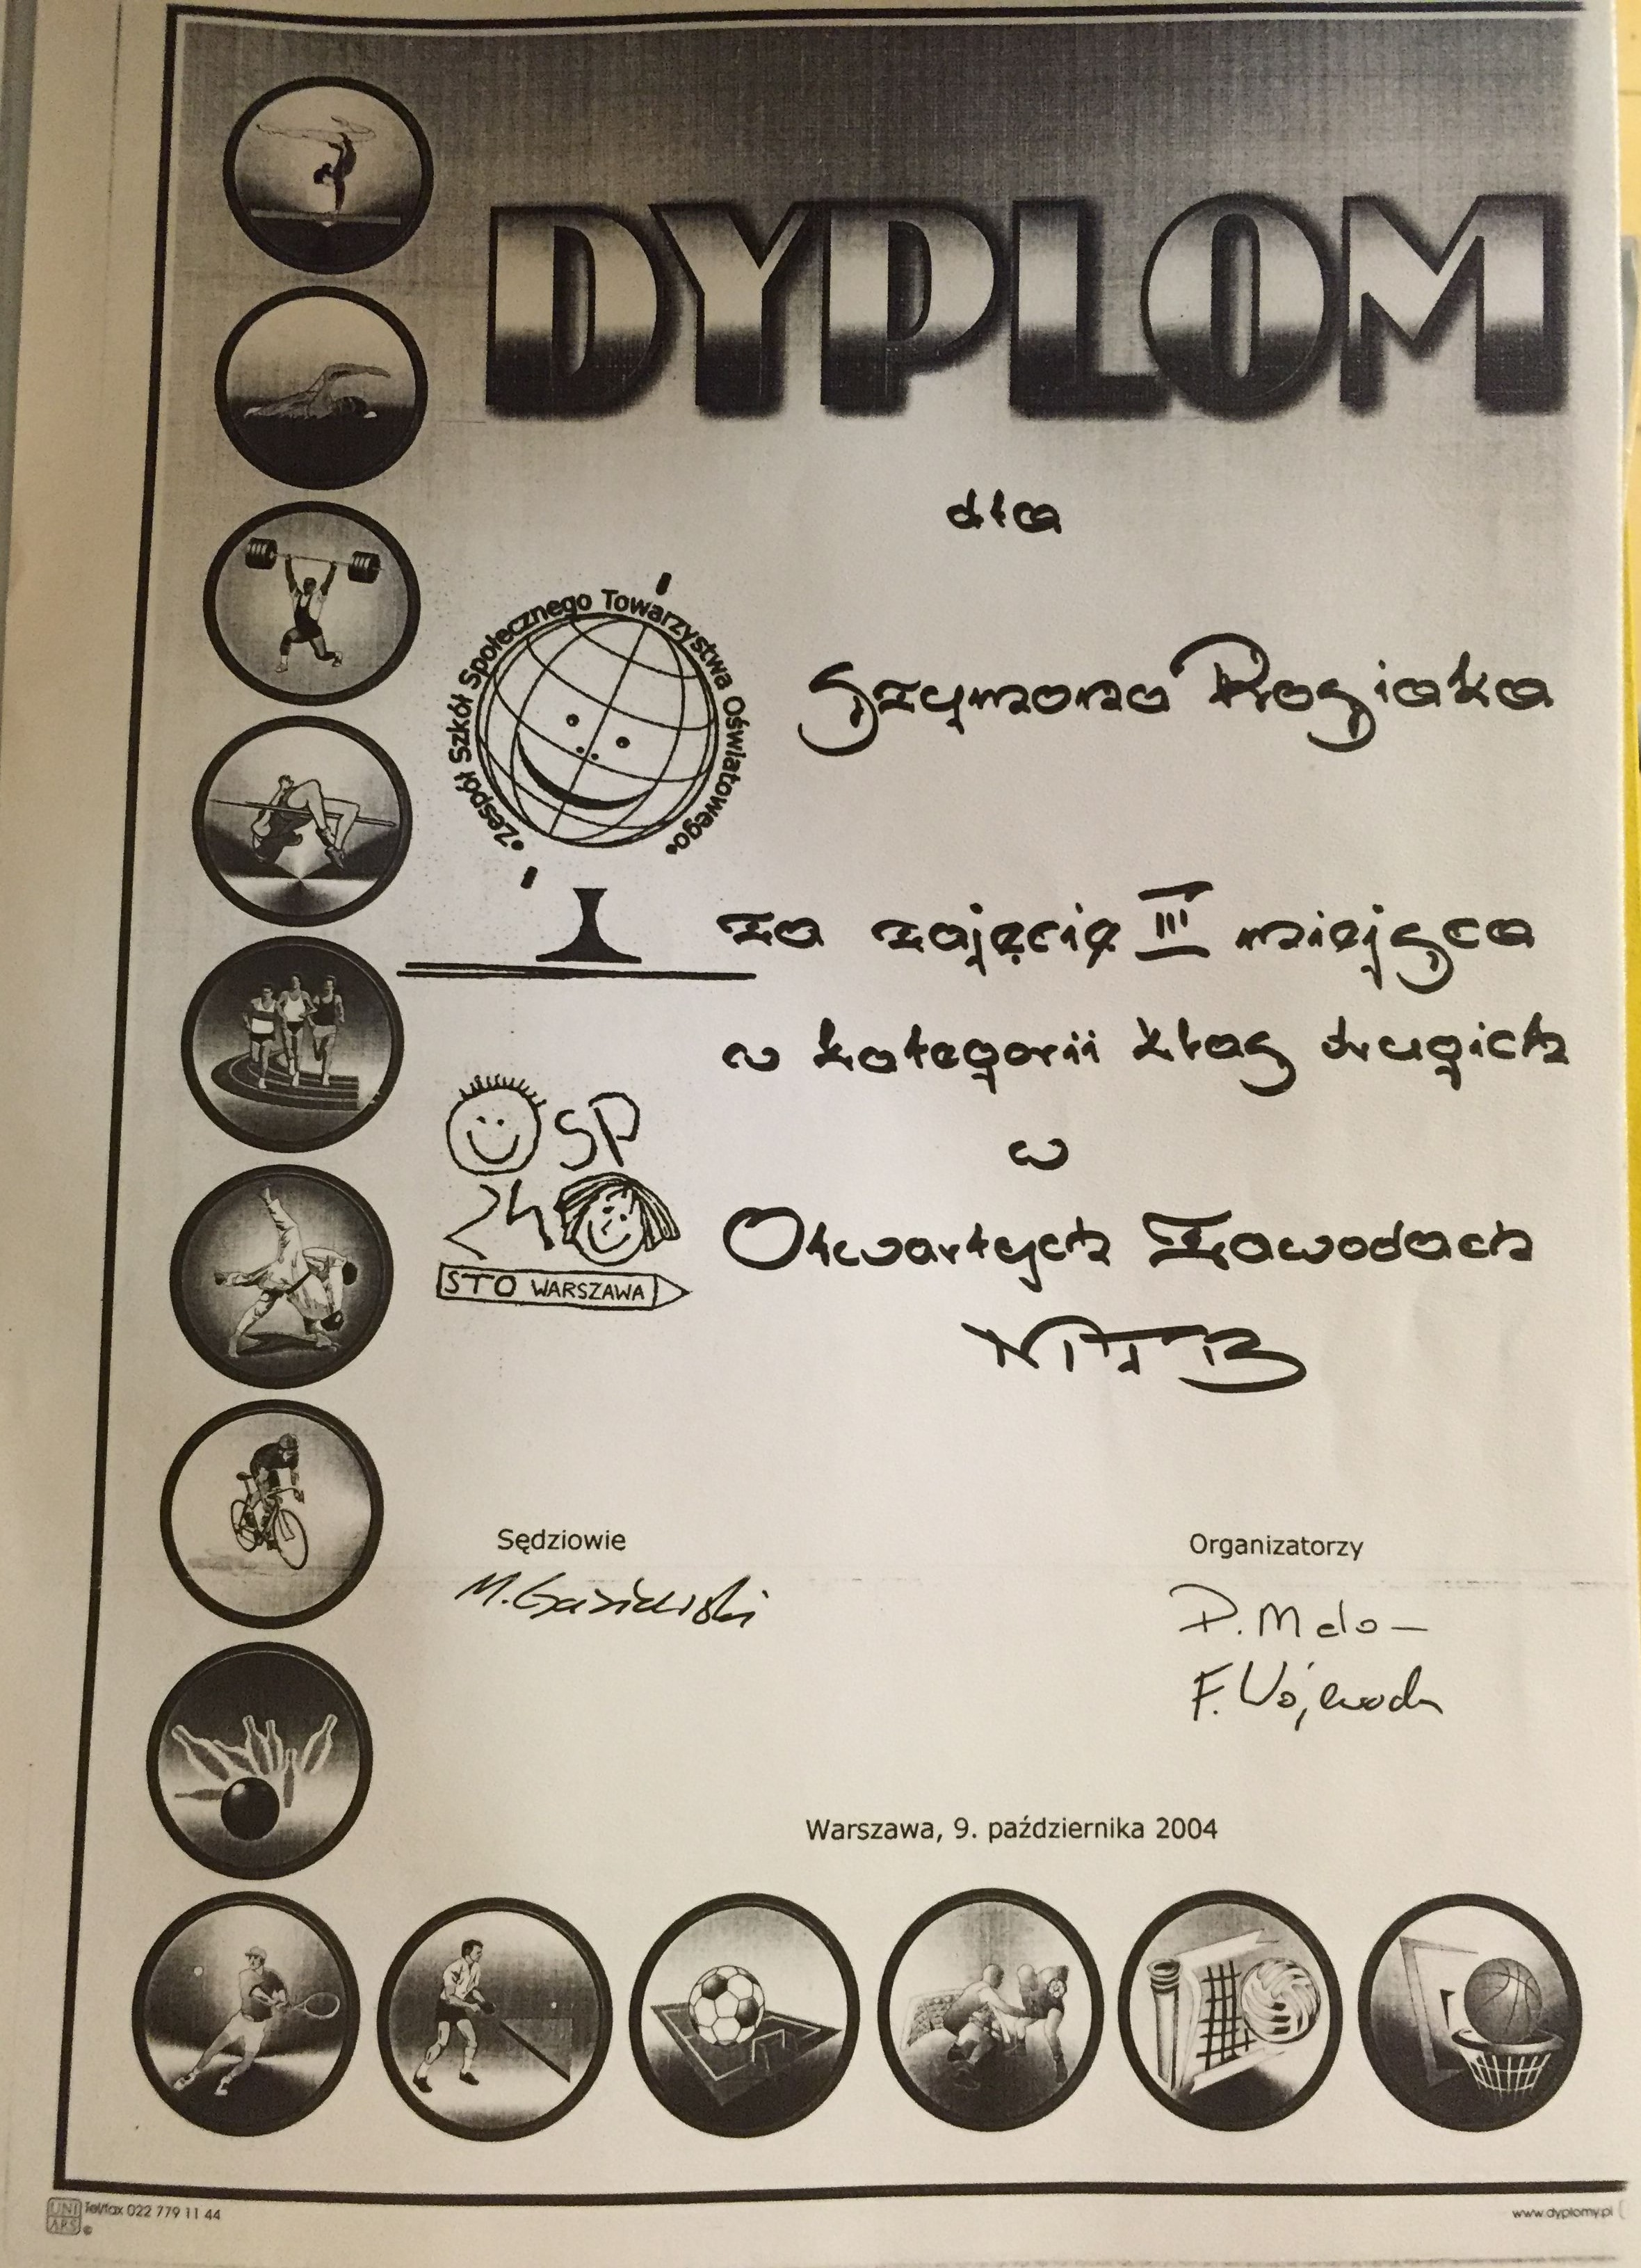 DYPLOM
dla
•Zespół Szkół Społecznego Towarzystwa Oświatowego•
Szymona Rosiaka
za zajęcie III miejsca
w kategorii klas drugich
w
Otwartych Zawodach
SP
24
STO WARSZAWA
Sędziowie
Organizatorzy
M.
D.
F.
Warszawa, 9. października 2004
UNI ARS
Tel/fax 022 779 11 44
©
www.dyplomy.pl